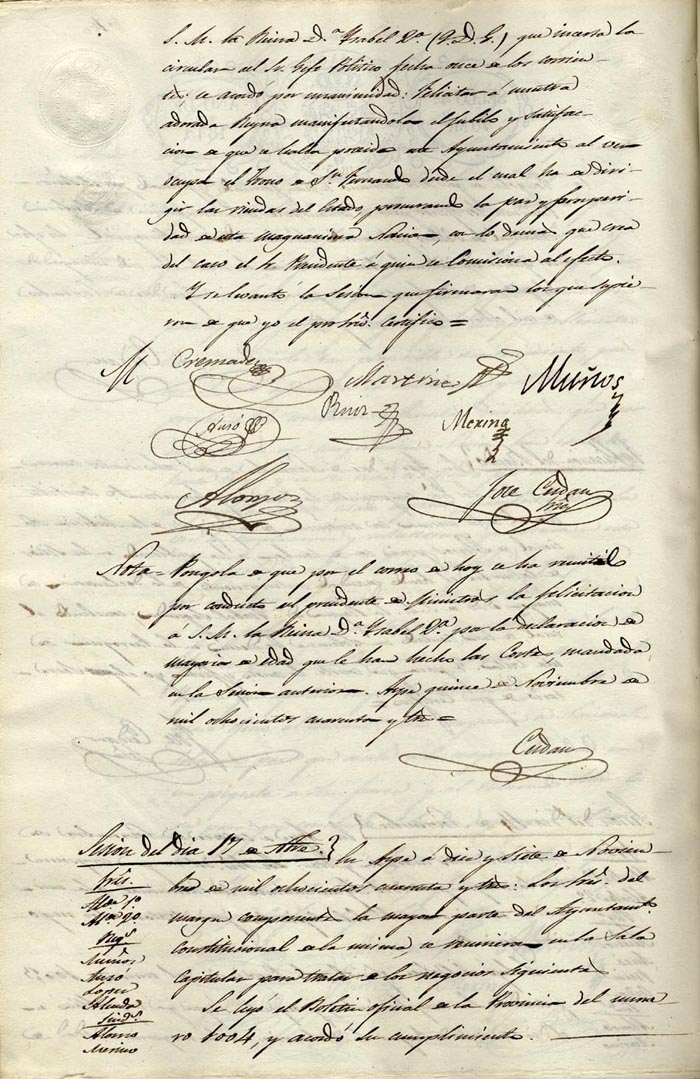 S. M. la Reina D.ª Ysabel 2ª (Q. D. G.) que inserta la
circular del Sr. Gefe Politico fecha once de los corrien-
tes; se acordó por unanimidad: Felicitar á nuestra
adorada Reyna manifestandola el jubilo y satisfac-
cion de que se halla poseido este Ayuntamiento al ver
ocupar el Trono de Sn. Fernando desde el cual ha de diri-
gir las riendas del Estado, procurando la paz y prosperi-
dad de esta magnanima Nacion, con lo demas que crea
del caso el Sr. Presidente á quien se Comisiona al efecto.
Y se levantó la Sesion que firmaron los que supie-
ron de que yo el Srio. Certifico =
M Cremades Martinez Muños
Ausó Ruiz Merino
Alonso Jose Cerdan
Srio
Nota = Pongola de que por el correo de hoy se ha remitido
por conducto del presidente de Ministros la felicitacion
á S. M. la Reina D.ª Ysabel 2ª por la declaracion de
mayoria de edad que le han hecho las Cortes, mandada
en la Sesion anterior. Aspe quince de Noviembre de
mil ochocientos cuarenta y tres =
Cerdan
Sesion del dia 17 de Nbre. } En Aspe á diez y siete de Noviem-
bre de mil ochocientos cuarenta y tres: Los Sres. del
margen componentes la mayor parte del Ayuntamto.
constitucional de la misma, se reunieron en la Sala
Capitular para tratar de los negocios siguientes
Se leyó el Boletin oficial de la Provincia del nume-
ro 1004, y acordó su cumplimiento.
Sres.
Alce 1º
Alce 2º
Regs
Muños
Ausó
Lopez
Sinds.
Alonso
Merino